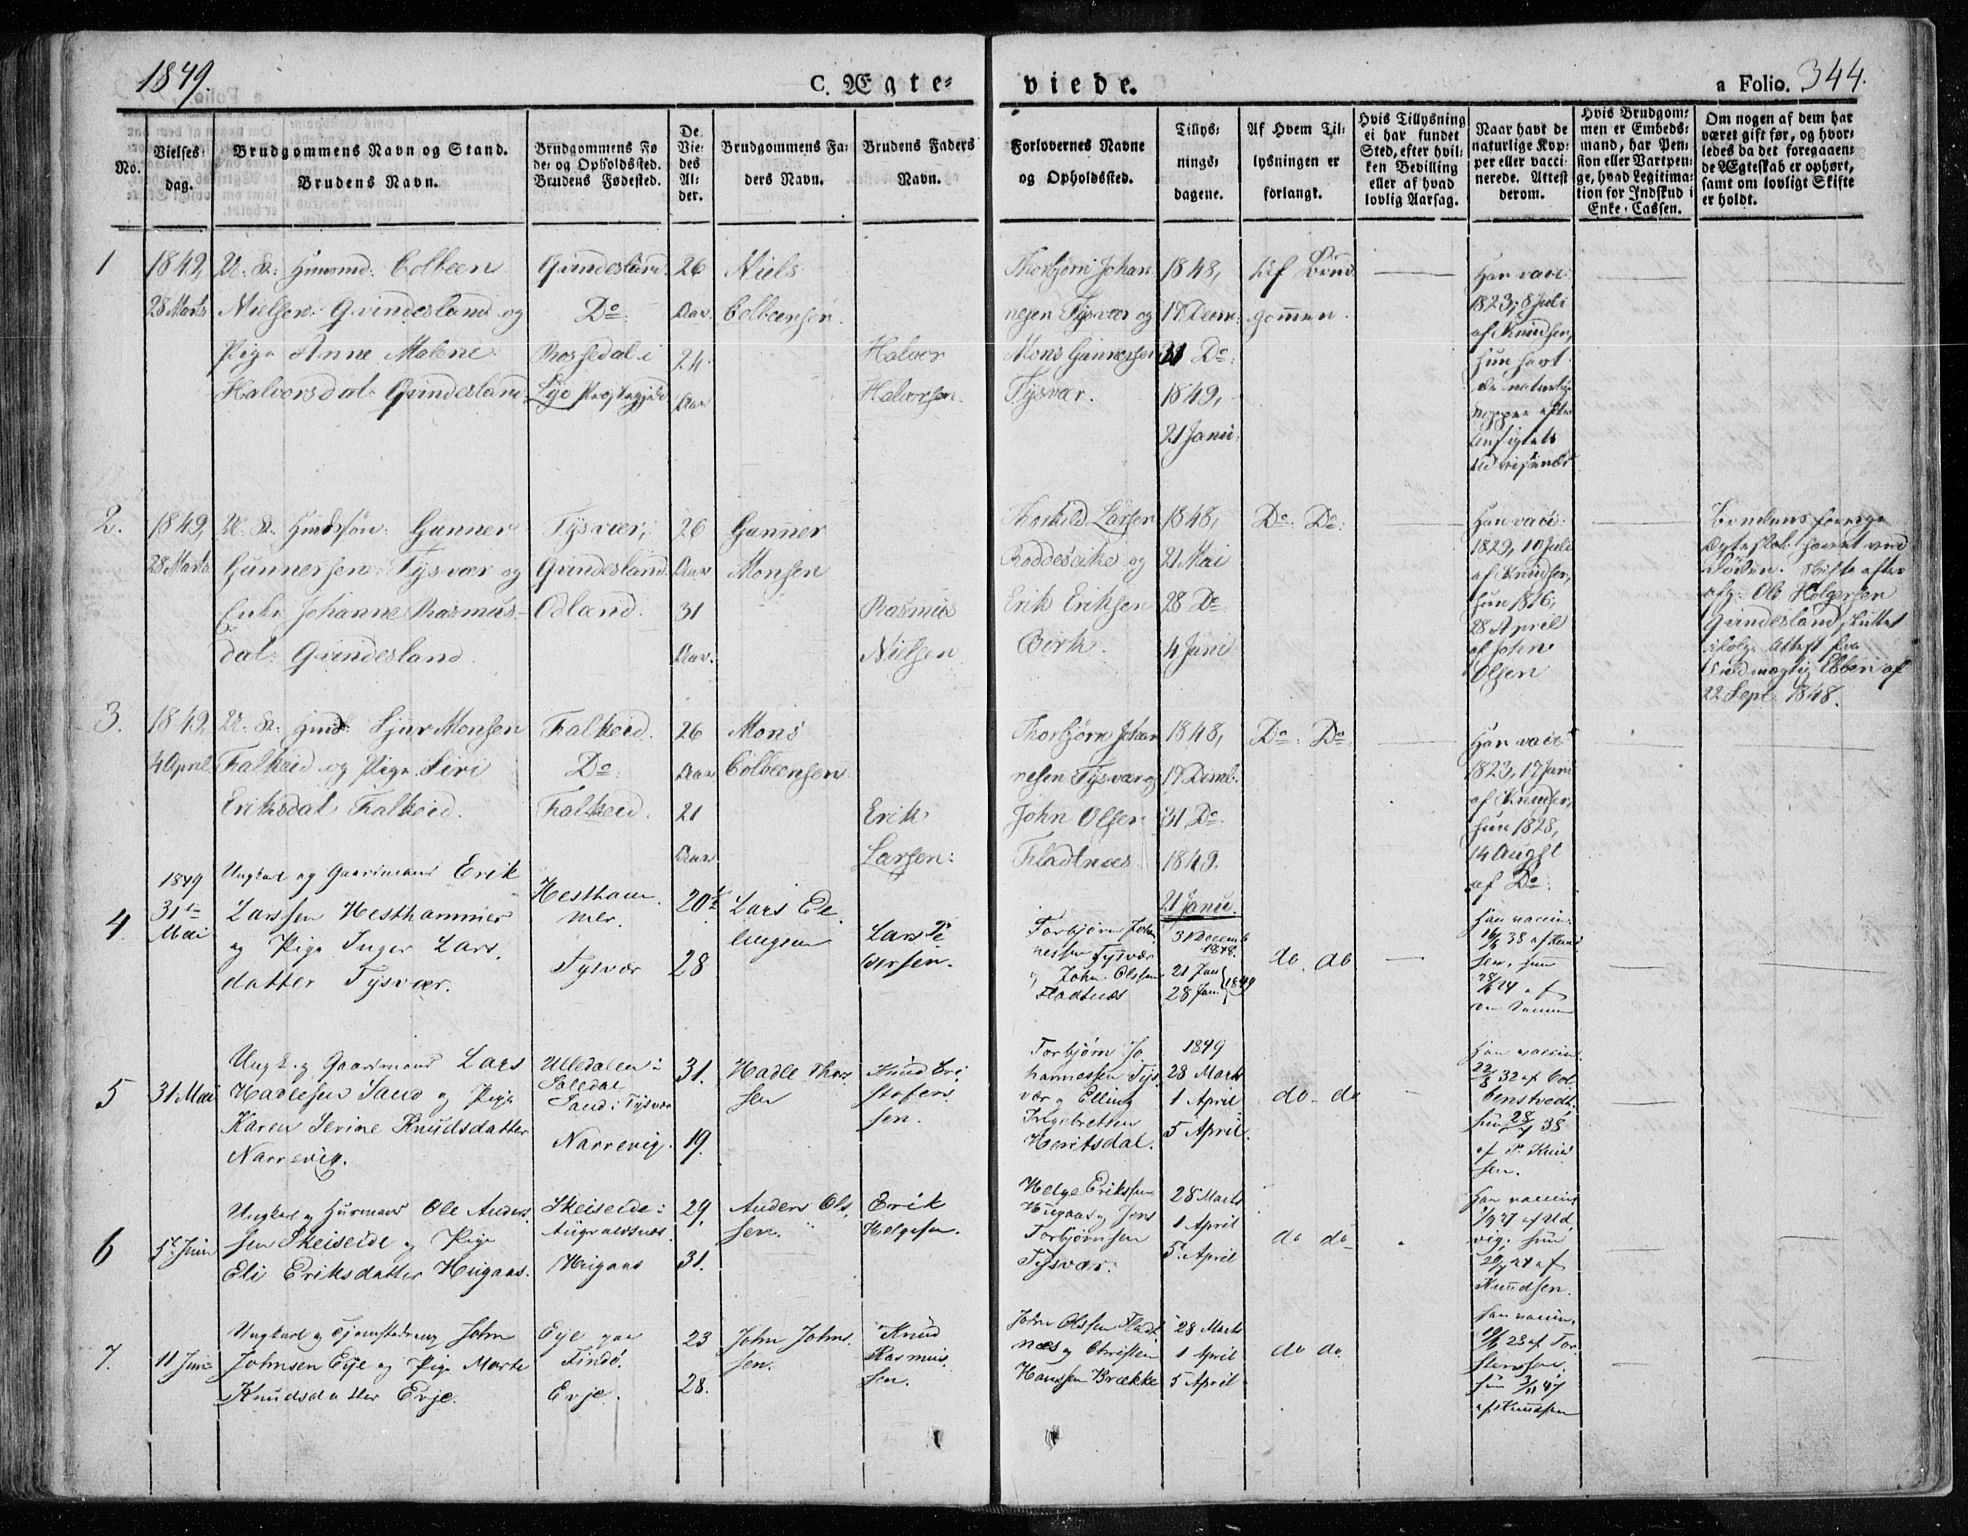 1849.
C. Ægte-
viede.
a Folio. 344.
No.
Vielses-
dag.
Brudgommens Navn og Stand.
Brudens Navn.
Brudgommens Fø
de- og Opholdssted.
Brudens Fødested.
De
Vie-
des
Al-
der.
Brudgommens Fa-
ders Navn.
Brudens Faders
Navn.
Forlovernes Navne
og Opholdssted.
Tillys-
nings-
dagene.
Af Hvem Til-
lysningen er
forlangt.
Hvis Tillysning
ei har fundet
Sted, efter hvil-
ken Bevilling
eller af hvad
lovlig Aarsag.
Naar havt de
naturlige Kop-
per eller vacci-
nerede. Attest
derom.
Hvis Brudgom-
men er Embeds-
mand, har Pen-
sion eller Vartpen-
ge, hvad Legitima-
tion for Indskud i
Enke-Cassen.
Om nogen af dem har
været gift før, og hvor-
ledes da det foregaaen-
de Ægteskab er ophørt,
samt om lovligt Skifte
er holdt.
1
1849,
28 Marts
Colbeen
Nielsen Grindesland og
Pige Anne Malene
Halvorsdat: Grindesland.
Grindesland.
Do:
Rossedal i
26
Aar.
24.
Aar
Niels
Colbeensen.
Halvor
Halvorsen.
Thorbjørn Johan
nesen Tysvær og
Mons Gunnersen
Tysvær.
1848,
17 Decm:
31 Do:
1849,
21 Janu:
Af Brud
gommen.
Han vacc:
1823, 8 Juli
af Knudsen,
hun havt
de naturlige
Kopper efter
2.
1849,
28 Marts.
Gunner
Gunnersen Tysvær og
Enke Johanne Rasmus-
dat: Grindesland.
Tysvær;
Grindesland
Odland.
26
Aar
31
Aar.
Gunner
Monsen
Rasmus
Nielsen
Thorkild Larsen
og
Erik Eriksen
Birk.
1848,
21 Mai
28 Do:
4 Juni
Do: Do:
Han vacc:
1829, 10 Juli
af Knudsen,
hun 1816,
28 April
af John
Olsen
hævet ved
Døden. Skifte efter
afg: Ole Holgersen
Grindesland sluttet
ifølge Attest fra
22 Sept. 1848.
3.
1849,
4 April
Sjur Monsen
Falkeid og Pige Siri
Eriksdat Falkeid.
Falkeid.
Do:
Falkeid.
26
Aar
21
Aar
Mons
Colbeensen
Erik
Larsen:
Thorbjørn Johan
nesen Tysvær og
John Olsen
Fladtnæs.
1848,
17 Decmb.
31 Do:
1849.
21 Janu.
Do: Do:
Han vacc
1823, 17 Juni
af Knudsen,
hun 1828,
14 August
af Do:
4
1849
31te
Mai
Ungkarl og Gaardmand Erik
Larssen Hesthammer
og Pige Inger Lars
datter Tysvær.
Hestham
mer
Tysvær
28
Lars El
lingsen
Lars Pe
dersen.
Torbjørn Joha
nessen Tysvær
og John Olssen
Fladtnæs
31 Decemb
1848.
21 Jan
28 Jan. 1849
do. do
Han vaccin.
38 af Knud
sen, hun
5
31 Mai
Ungk. og Gaardmand Lars
Hadlesen Sand og Pige
Karen Serine Knudsdatter
Narrevig.
Ulledalen i
Saledal
Sand i Tysvær
Narrevig.
31.
19.
Hadle Thor
sen
Knud Cri
stofers
sen.
Torbjørn Jo
hannessen Tys
vær og Elling
Ingebretsen
Heritsdal.
1849
28 Marts
1 April
5 April.
do - do
Han vaccin
22/8 32 af Col.
Censtvedt.
hun 28/7 38
af P. Knud
sen.
6
5t. Juni
Ungkarl og Huusmand Ole Anders
sen Skeiseide og Pige
Eli Eriksdatter Heigaas.
Skeiseide i
Augvaldsnæs
Heigaas
29.
31.
Anders Ols
sen.
Erik
Helgesen.
Helge Erikssen
Heigaas og Jens
Torbjørnsen
Tysvær.
28 Marts
1 April
5. April
do do
Han vaccin
vig. hun
Knudsen.
7.
11 Juni
Ungkarl og Tjenestedreng John
Johnsen Evje og Pige Marte
Knudsdatter Evje.
Eye paa
Findø.
Evje.
23
28.
John Johns
sen.
Knud
Rasmus
sen.
John Olssen Fladt
næs og Christen
Hanssen Brække
28 Marts
1 April
5 April
do do.
Han vaccin.
19/6 28 af Tor
stensson.
hun 3/11 47
af Knudsen